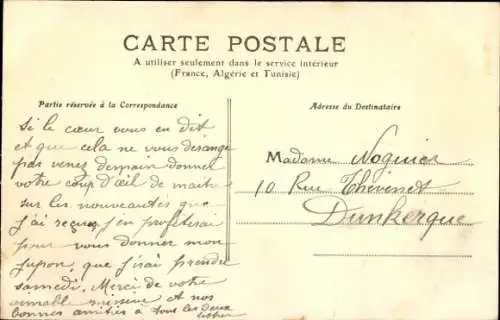 CARTE POSTALE
A utiliser seulement dans le service intérieur
(France, Algérie et Tunisie)
Partie réservée à la Correspondance
Adresse du Destinataire
Si le cœur vous en dit
et que cela ne vous dérange
pas venez demain donner
votre coup d'œil de maitre
sur les nouveautés que
j'ai reçues, j'en profiterai
pour vous donner mon
jupon, que j'irai prendre
samedi. Merci de votre
aimable missive et nos
bonnes amitiés à tous les deux
Madame Noquier
10 Rue Thévenet
Dunkerque